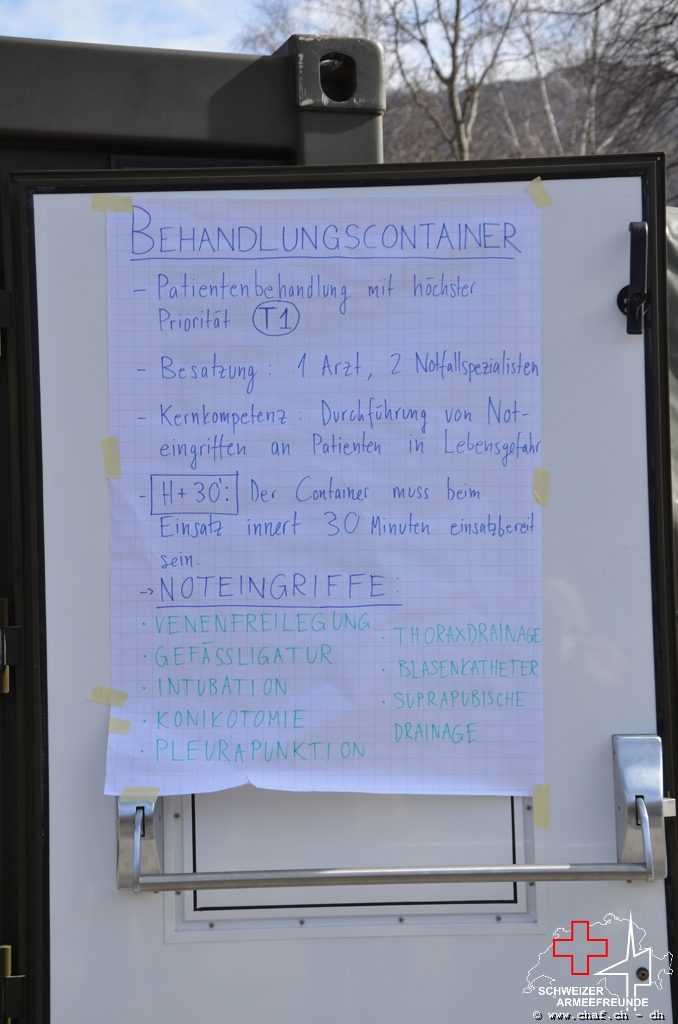 BEHANDLUNGSCONTAINER
- Patientenbehandlung mit höchster
Priorität T1
- Besatzung: 1 Arzt, 2 Notfallspezialisten
- Kernkompetenz: Durchführung von Not-
eingriffen an Patienten in Lebensgefahr
- H+30': Der Container muss beim
Einsatz innert 30 Minuten einsatzbereit
sein.
→ NOTEINGRIFFE:
· VENENFREILEGUNG
· GEFÄSSLIGATUR
· INTUBATION
· KONIKOTOMIE
· PLEURAPUNKTION
· THORAXDRAINAGE
· BLASENKATHETER
· SUPRAPUBISCHE
DRAINAGE
SCHWEIZER
ARMEEFREUNDE
© www.chaf.ch - dh